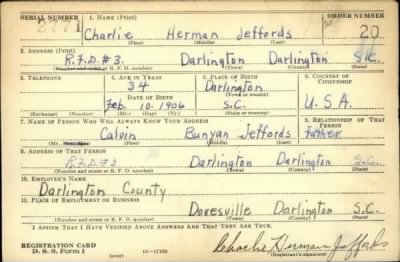 SERIAL NUMBER 1. NAME (Print) ORDER NUMBER
Charlie Herman Jeffords 20
(First) (Middle) (Last)
2. ADDRESS (Print)
R.F.D.#3. Darlington Darlington S.C.
(Number and street or R. F. D. number) (Town) (County) (State)
3. TELEPHONE 4. AGE IN YEARS 5. PLACE OF BIRTH 6. COUNTRY OF CITIZENSHIP
34 Darlington
DATE OF BIRTH (Town or county)
Feb. 10 1906 S.C. U.S.A.
(Exchange) (Number) (Mo.) (Day) (Yr.) (State or country)
7. NAME OF PERSON WHO WILL ALWAYS KNOW YOUR ADDRESS 8. RELATIONSHIP OF THAT PERSON
Calvin Bunyan Jeffords Father
(First) (Middle) (Last)
9. ADDRESS OF THAT PERSON
Darlington Darlington S.C.
(Number and street or R. F. D. number) (Town) (County) (State)
10. EMPLOYER'S NAME
Darlington County
11. PLACE OF EMPLOYMENT OR BUSINESS
Dovesville Darlington S.C.
(Number and street or R. F. D. number) (Town) (County) (State)
I AFFIRM THAT I HAVE VERIFIED ABOVE ANSWERS AND THAT THEY ARE TRUE.
REGISTRATION CARD
D. S. S. Form 1 (over) 16—17105 Charlie Herman Jeffords
(Registrant's signature)